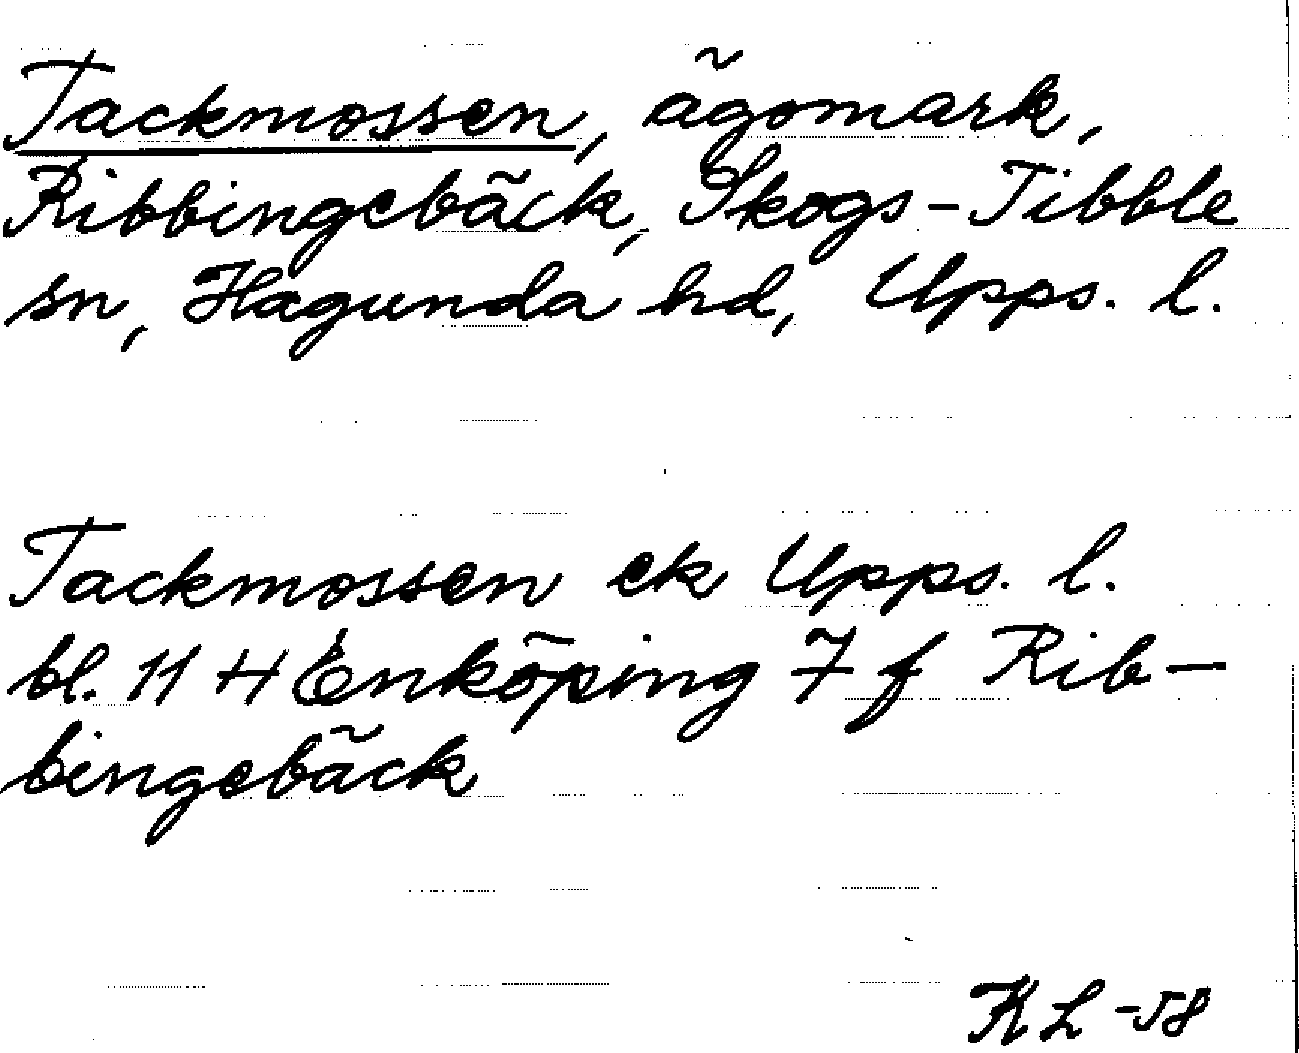 Tackmossen, ägomark,
Ribbingebäck, Skogs-Tibble
sn, Hagunda hd, Upps. l.
Tackmossen ek Upps. l.
bl. 11 H Enköping 7 f Rib-
bingebäck
KL -58